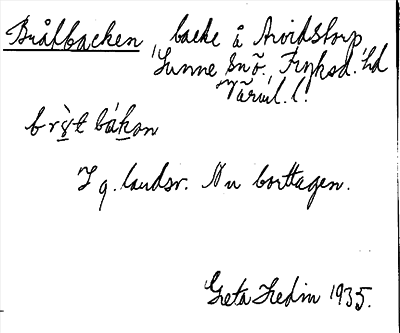 Bråtbacken, backe å Arvidstorp,
Sunne sn ö. Fryksd. hd
Värml. l.
br s̀t bákən
I g. landsv. Nu borttagen.
Greta Hedin 1935.